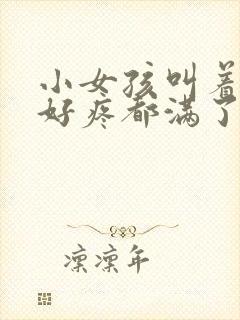 小女孩叫着
好疼都满了
凛凛年